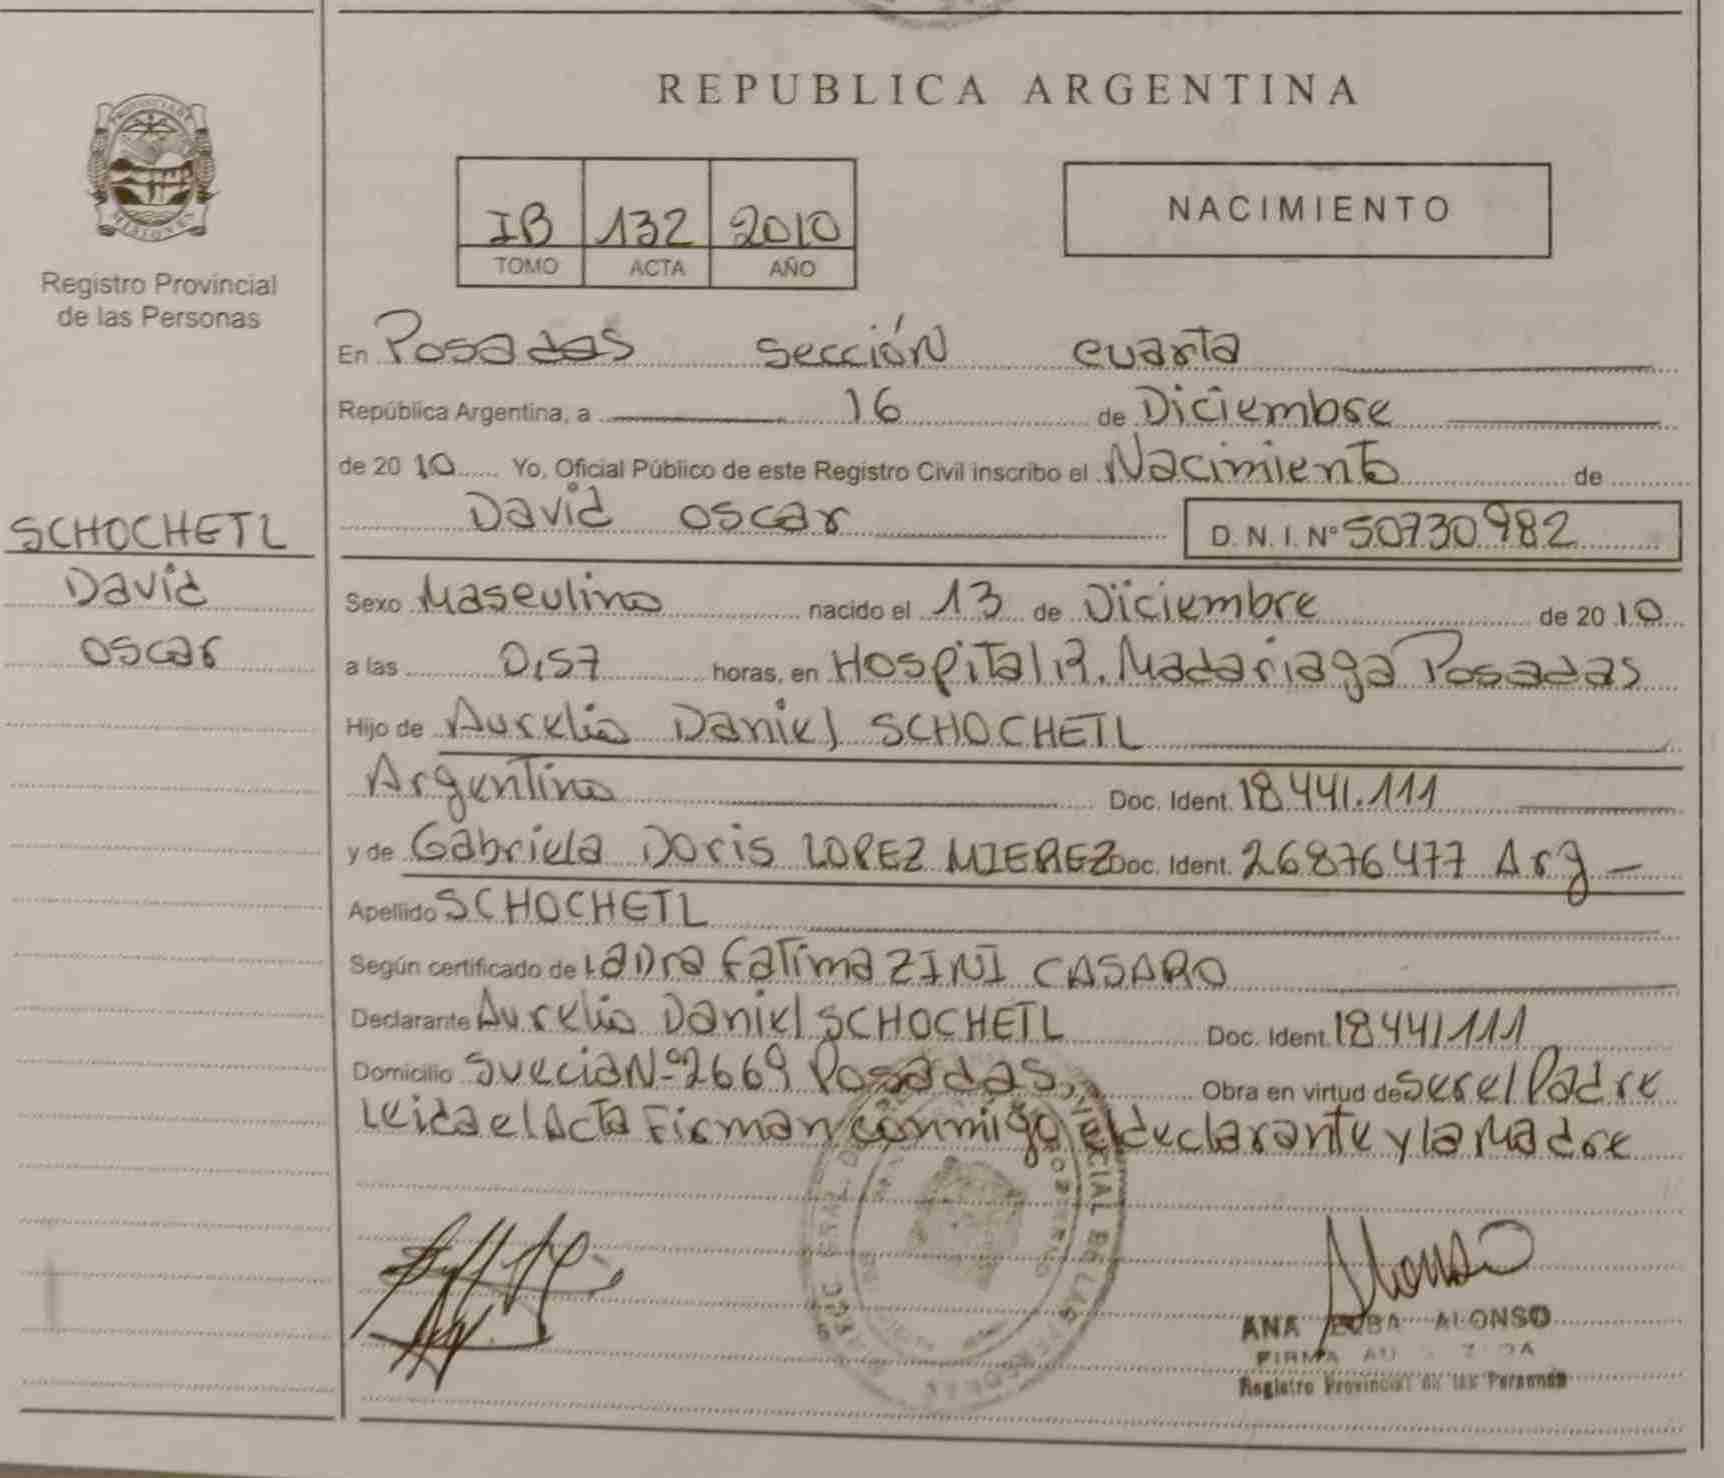 REPUBLICA ARGENTINA
PROVINCIA DE
MISIONES
Registro Provincial
de las Personas
IB 132 2010
TOMO ACTA AÑO
NACIMIENTO
En Posadas sección cuarta
República Argentina, a 16 de Diciembre
de 2010 Yo, Oficial Público de este Registro Civil inscribo el Nacimiento de
David oscar D. N. I. Nº 50730982
SCHOCHETL
David
oscar
Sexo Masculino nacido el 13 de Diciembre de 2010
a las 0,57 horas, en Hospital R. Madariaga Posadas
Hijo de Aurelio Daniel SCHOCHETL
Argentino Doc. Ident. 18.441.111
y de Gabriela Doris LOPEZ MIEREZ Doc. Ident. 26876477 Arg -
Apellido SCHOCHETL
Según certificado de Fatima ZINI CASARO
Declarante Aurelio Daniel SCHOCHETL Doc. Ident. 18441111
Domicilio Suecia Nº 2669 Posadas, Obra en virtud de ser el Padre
Leida el Acta Firman conmigo el declarante y la Madre
Alonso
ANA ALONSO
FIRMA
Registro Provincial de las Personas